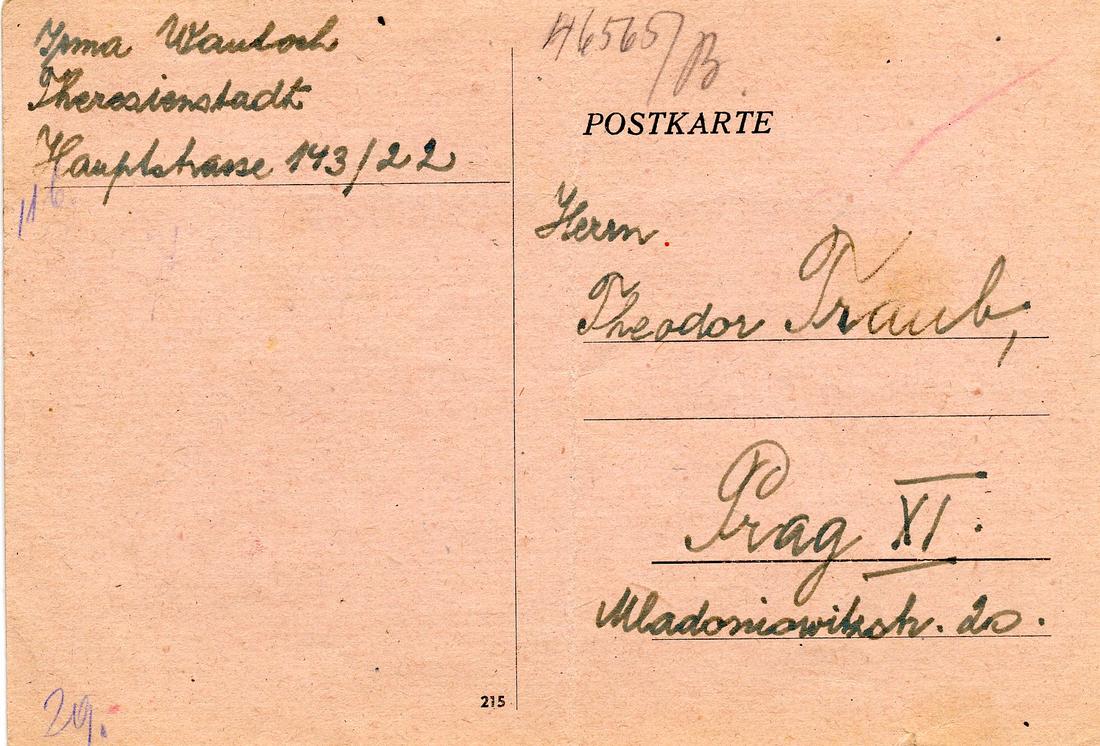 Irma Wantoch
Theresienstadt
Hauptstrasse 143/22
116.
29.
215
46565/B.
POSTKARTE
Herrn
Theodor Traub,
Prag XI.
Mladoniowitzstr. 20.